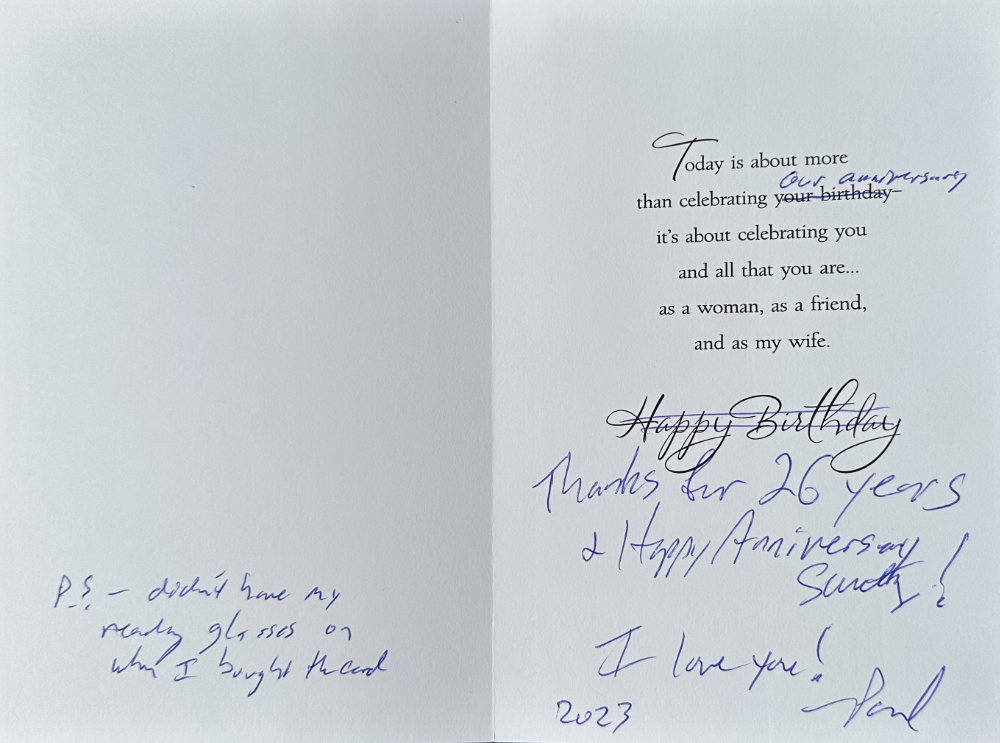 Today is about more
our anniversary
than celebrating your birthday–
it's about celebrating you
and all that you are...
as a woman, as a friend,
and as my wife.
Happy Birthday
Thanks for 26 years
& Happy Anniversary
!
I love you!
2023 – Paul
P.S. – didn't have my
reading glasses on
when I bought the card